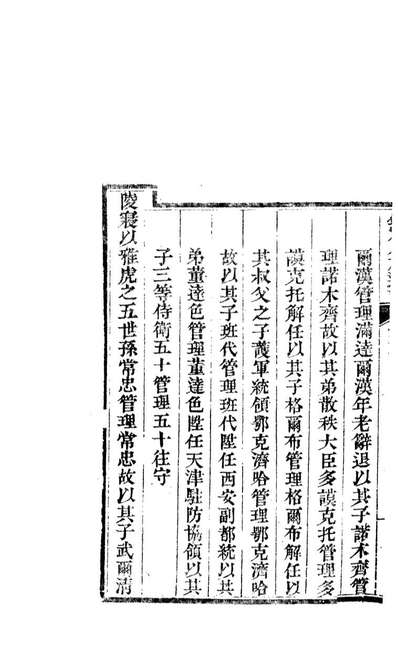 爾漢管理滿達爾漢年老辭退以其子諾木齊管
理諾木齊故以其弟散秩大臣多謨克托管理多
謨克托解任以其子格爾布管理格爾布解任以
其叔父之子護軍統領鄂克濟哈管理鄂克濟哈
故以其子班代管理班代陞任西安副都統以其
弟董達色管理董達色陞任天津駐防協領以其
子三等侍衛五十管理五十往守
陵寢以雅虎之五世孫常忠管理常忠故以其子武爾清